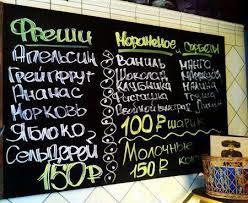 Фреши
Апельсин
Грейпфрут
Ананас
Морковь
Яблоко
Сельдерей
150₽
Мороженое и Сорбеты
Ваниль Манго
Шоколад
Клубника Малина
Фисташка Груша
100₽ шарик
Молочные
150₽